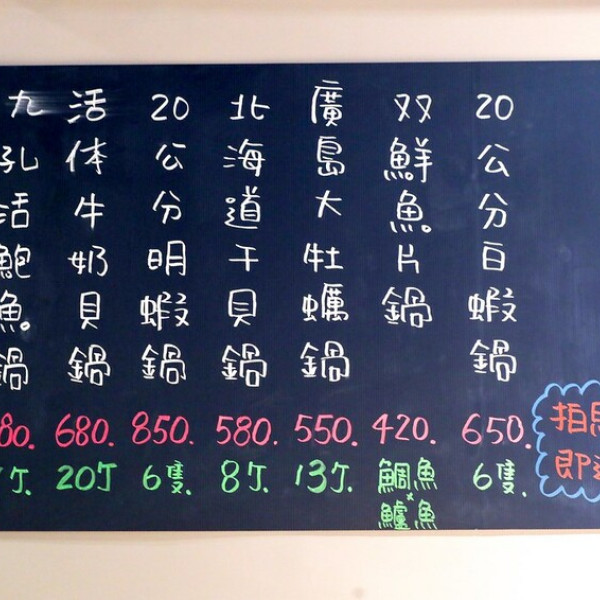 20公分白蝦鍋
650.
6隻.
双鮮魚片鍋
420.
鯛魚
×
鱸魚
廣島大牡蠣鍋
550.
13丁.
北海道干貝鍋
580.
8丁.
20公分明蝦鍋
850.
6隻.
活体牛奶貝鍋
680.
20丁
九孔活鮑魚鍋
80.
丁.
拍
即